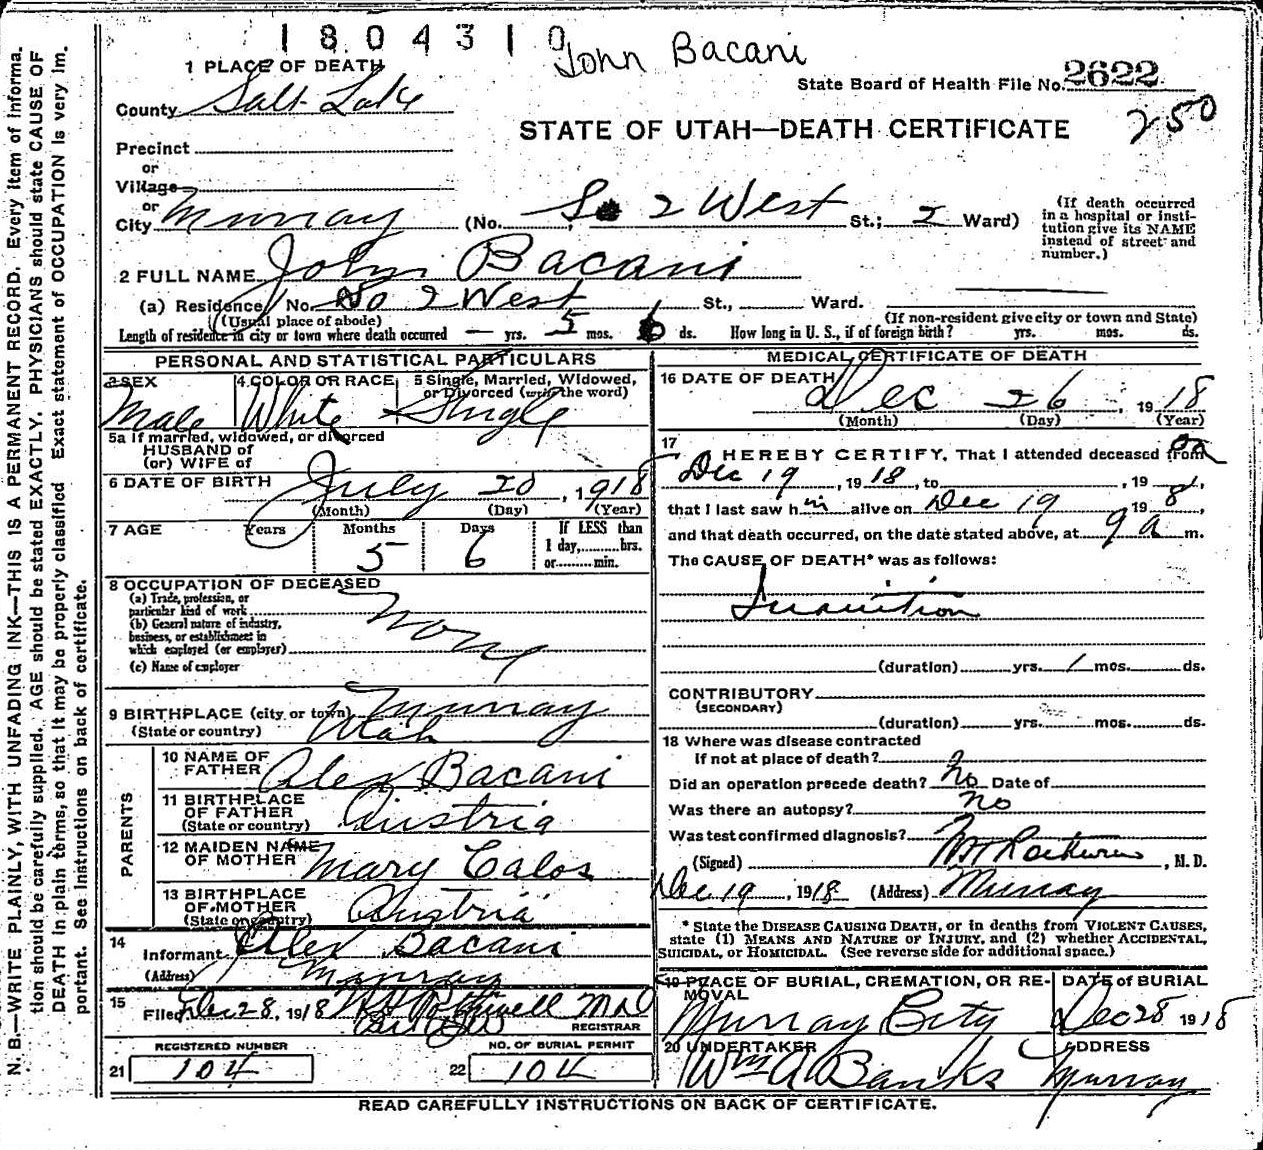 1804310
John Bacani
1 PLACE OF DEATH
State Board of Health File No. 2622
County Salt Lake
STATE OF UTAH—DEATH CERTIFICATE
250
Precinct
or
Village
or
City Murray (No. So 2 West St.; 2 Ward)
(If death occurred
in a hospital or insti-
tution give its NAME
instead of street and
number.)
2 FULL NAME John Bacani
(a) Residence, No. So 2 West St., Ward.
(Usual place of abode)
(If non-resident give city or town and State)
Length of residence in city or town where death occurred — yrs. 5 mos. 6 ds. How long in U. S., if of foreign birth? yrs. mos. ds.
PERSONAL AND STATISTICAL PARTICULARS
3 SEX
Male
4 COLOR OR RACE
White
5 Single, Married, Widowed,
or Divorced (write the word)
Single
5a If married, widowed, or divorced
HUSBAND of
(or) WIFE of
6 DATE OF BIRTH July 20, 1918
(Month) (Day) (Year)
7 AGE Years Months Days If LESS than
5 6 1 day, hrs.
or min.
8 OCCUPATION OF DECEASED
(a) Trade, profession, or
particular kind of work
(b) General nature of industry,
business, or establishment in
which employed (or employer)
(c) Name of employer
None
9 BIRTHPLACE (city or town) Murray
(State or country) Utah
PARENTS
10 NAME OF
FATHER Alex Bacani
11 BIRTHPLACE
OF FATHER
(State or country) Austria
12 MAIDEN NAME
OF MOTHER Mary Calos
13 BIRTHPLACE
OF MOTHER
(State or country) Austria
14
Informant Alex Bacani
(Address) Murray
15
Filed Dec 28, 1918 M D
REGISTRAR
REGISTERED NUMBER
21 104
NO. OF BURIAL PERMIT
22 104
MEDICAL CERTIFICATE OF DEATH
16 DATE OF DEATH
Dec 26, 1918
(Month) (Day) (Year)
17
I HEREBY CERTIFY, That I attended deceased from on
Dec 19, 1918, to , 19
that I last saw him alive on Dec 19 1918,
and that death occurred, on the date stated above, at 9 a m.
The CAUSE OF DEATH* was as follows:
Inanition
(duration) yrs. 1 mos. ds.
CONTRIBUTORY
(SECONDARY)
(duration) yrs. mos. ds.
18 Where was disease contracted
If not at place of death?
Did an operation precede death? No Date of
Was there an autopsy? No
Was test confirmed diagnosis?
(Signed) , M. D.
Dec 19, 1918 (Address) Murray
* State the DISEASE CAUSING DEATH, or in deaths from VIOLENT CAUSES,
state (1) MEANS AND NATURE OF INJURY, and (2) whether ACCIDENTAL,
SUICIDAL, or HOMICIDAL. (See reverse side for additional space.)
19 PLACE OF BURIAL, CREMATION, OR RE-
MOVAL
Murray City
DATE of BURIAL
Dec 28 1918
20 UNDERTAKER
Wm A Banks
ADDRESS
Murray
READ CAREFULLY INSTRUCTIONS ON BACK OF CERTIFICATE.
N. B.—WRITE PLAINLY, WITH UNFADING INK—THIS IS A PERMANENT RECORD. Every item of informa.
tion should be carefully supplied. AGE should be stated EXACTLY. PHYSICIANS should state CAUSE OF
DEATH in plain terms, so that it may be properly classified Exact statement of OCCUPATION is very im.
portant. See instructions on back of certificate.